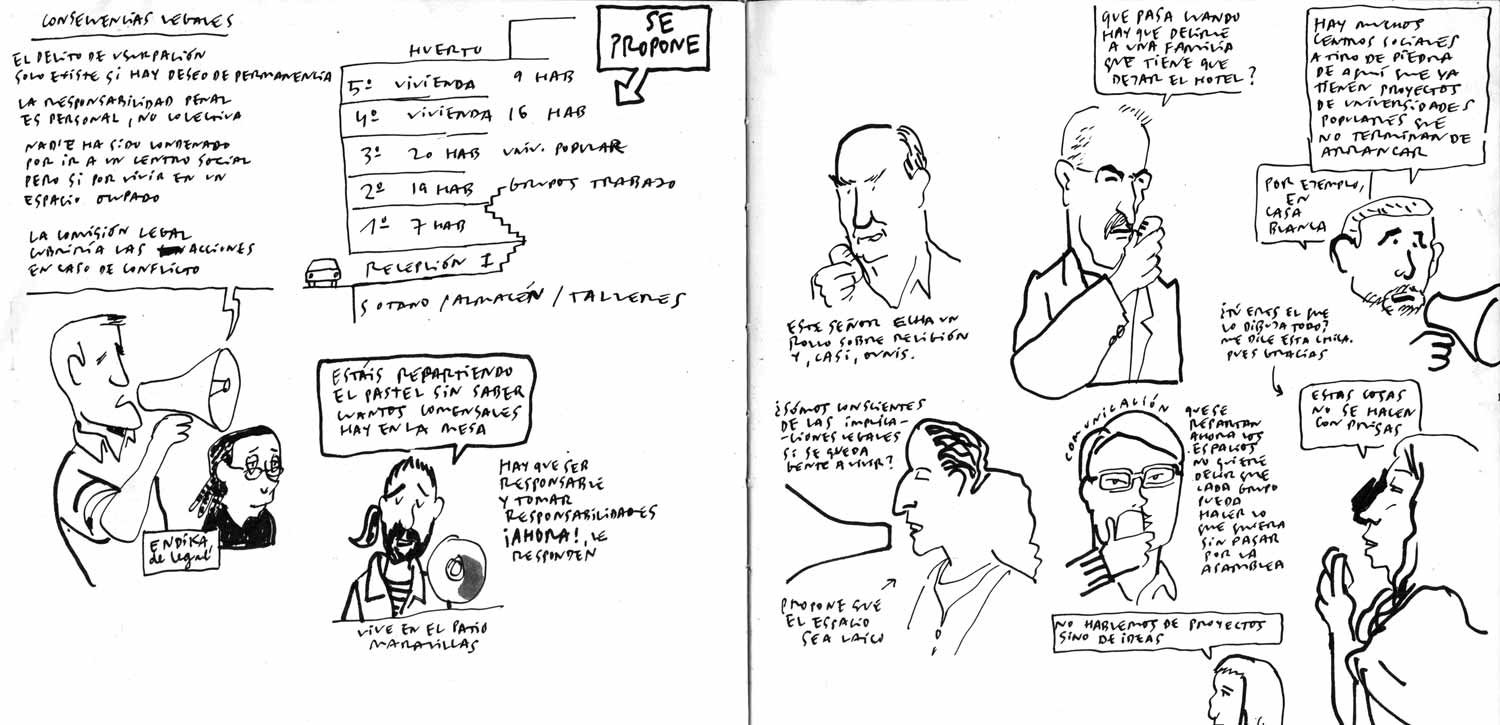 CONSECUENCIAS LEGALES
EL DELITO DE USURPACIÓN
SOLO EXISTE SI HAY DESEO DE PERMANENCIA
LA RESPONSABILIDAD PENAL
ES PERSONAL, NO COLECTIVA
NADIE HA SIDO CONDENADO
POR IR A UN CENTRO SOCIAL
PERO SI POR VIVIR EN UN
ESPACIO OKUPADO
LA COMISIÓN LEGAL
CUBRIRÍA LAS ACCIONES
EN CASO DE CONFLICTO
ENDIKA
de legal
SE
PROPONE
HUERTO
5º VIVIENDA 9 HAB
4º VIVIENDA 16 HAB
3º 20 HAB UNIV. POPULAR
2º 19 HAB GRUPOS TRABAJO
1º 7 HAB
RECEPCIÓN
SOTANO / ALMACÉN / TALLERES
ESTÁIS REPARTIENDO
EL PASTEL SIN SABER
CUANTOS COMENSALES
HAY EN LA MESA
HAY QUE SER
RESPONSABLE
Y TOMAR
RESPONSABILIDADES
¡AHORA!, LE
RESPONDEN
VIVE EN EL PATIO
MARAVILLAS
ESTE SEÑOR ECHA UN
ROLLO SOBRE RELIGIÓN
Y, CASI, OVNIS.
QUE PASA CUANDO
HAY QUE DECIRLE
A UNA FAMILIA
QUE TIENE QUE
DEJAR EL HOTEL?
HAY MUCHOS
CENTROS SOCIALES
A TIRO DE PIEDRA
DE AQUÍ QUE YA
TIENEN PROYECTOS
DE UNIVERSIDADES
POPULARES QUE
NO TERMINAN DE
ARRANCAR
POR EJEMPLO,
EN
CASA
BLANCA
¿TÚ ERES EL QUE
LO DIBUJA TODO?
ME DICE ESTA CHICA.
PUES GRACIAS
¿SÓMOS CONSCIENTES
DE LAS IMPLICA-
-CIONES LEGALES
SI SE QUEDA
GENTE A VIVIR?
PROPONE QUE
EL ESPACIO
SEA LAICO
COMUNICACIÓN
QUE SE
REPARTAN
AHORA LOS
ESPACIOS
NO QUIERE
DECIR QUE
CADA GRUPO
PUEDA
HACER LO
QUE QUIERA
SIN PASAR
POR LA
ASAMBLEA
ESTAS COSAS
NO SE HACEN
CON PRISAS
NO HABLEMOS DE PROYECTOS
SINO DE IDEAS